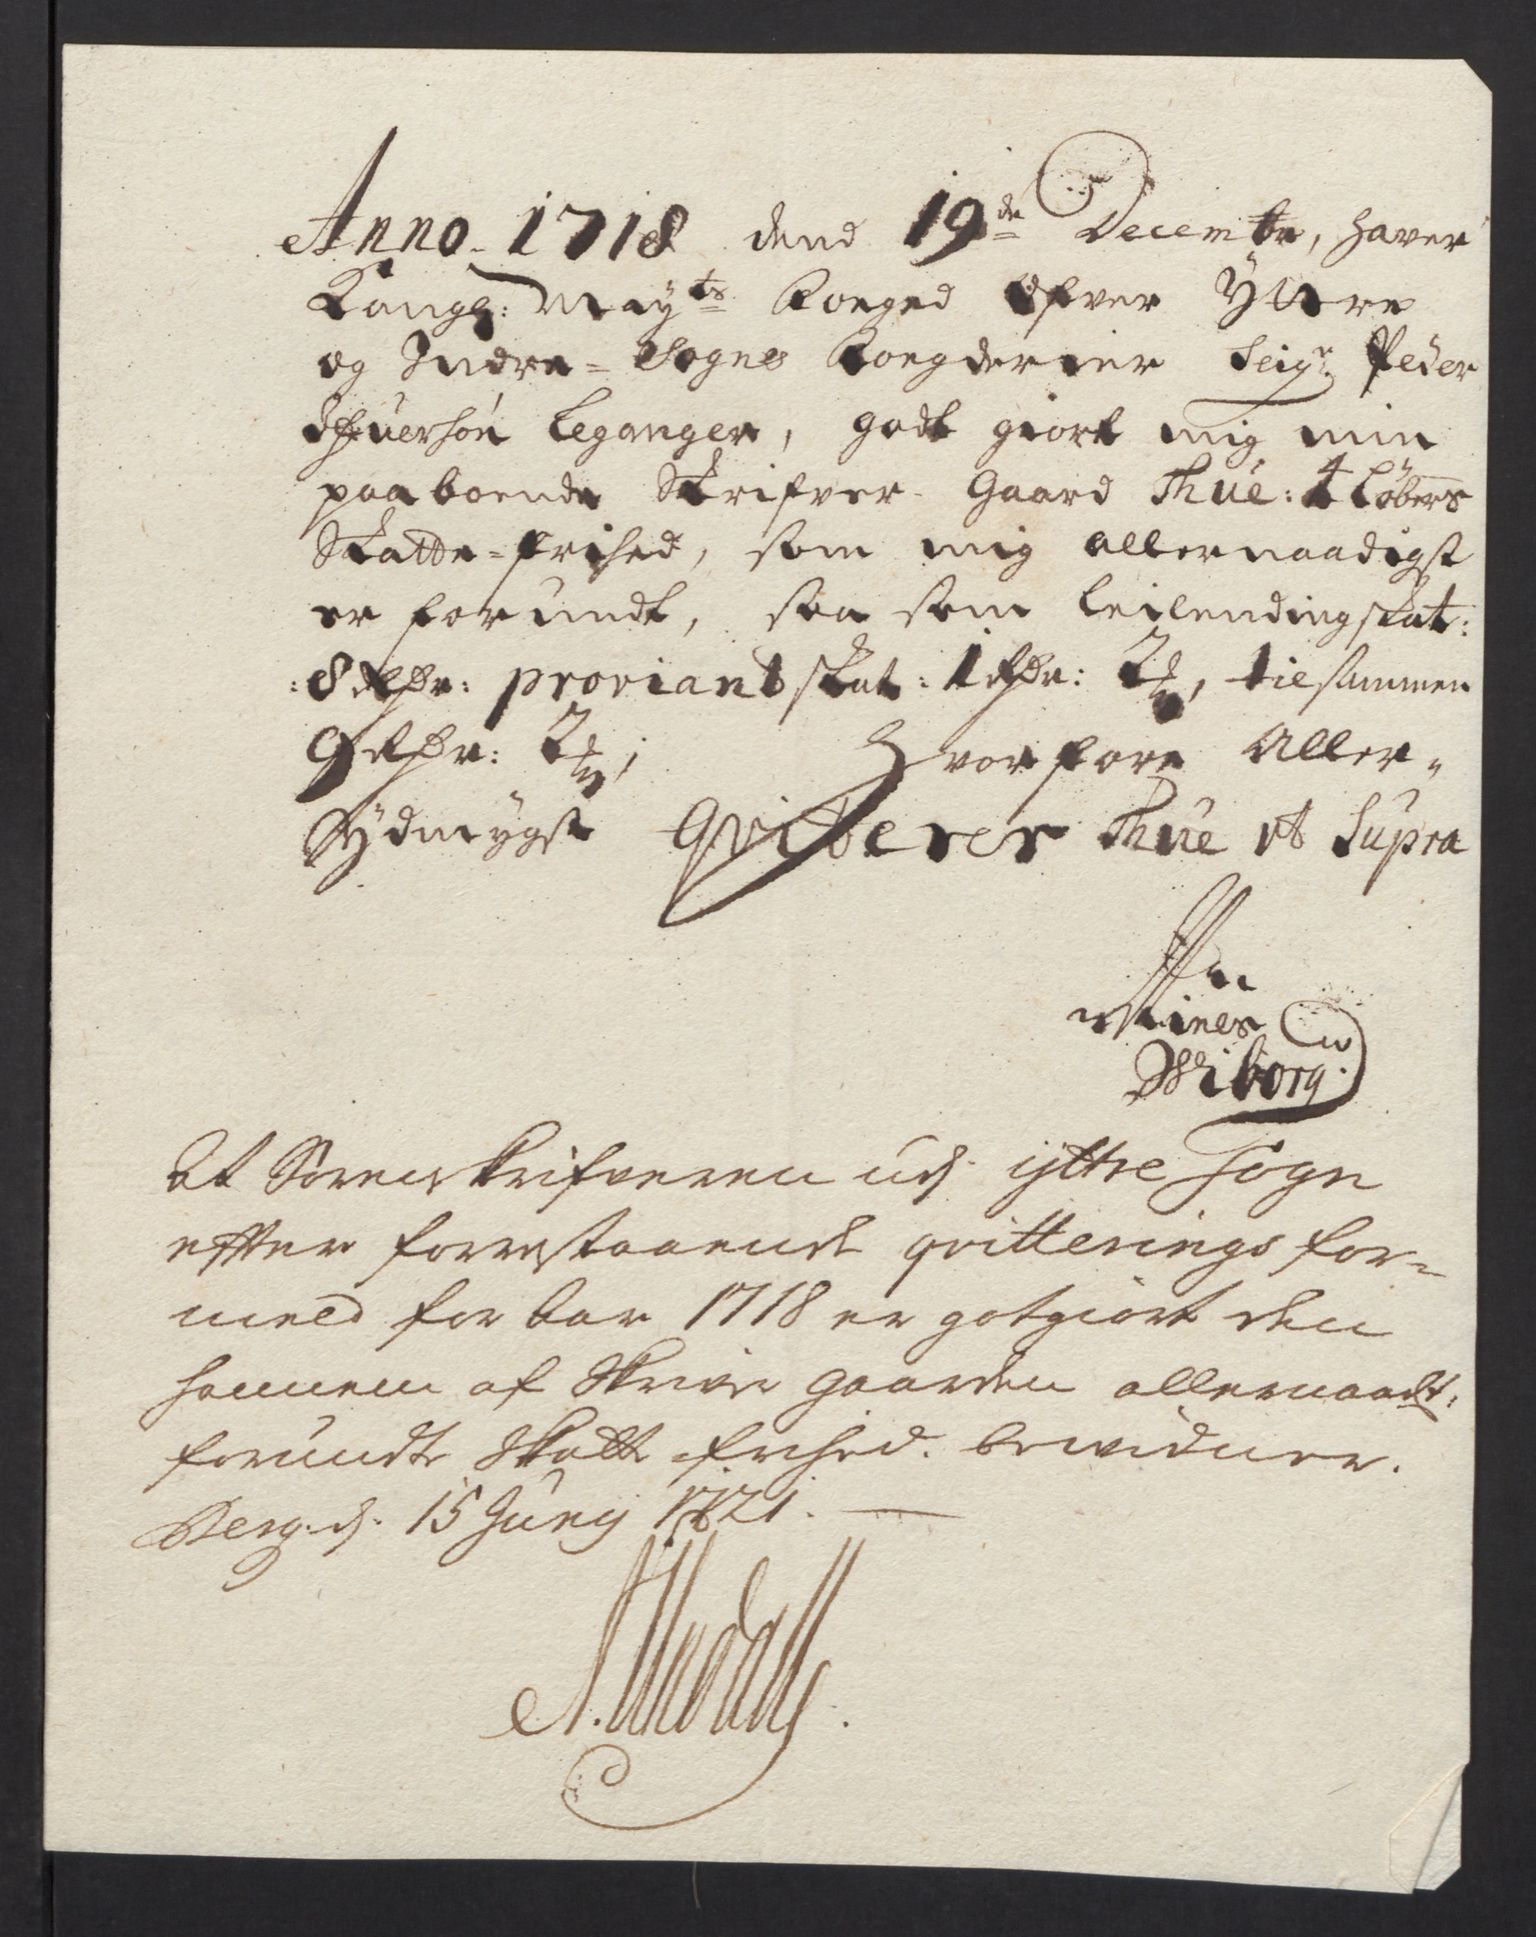 Anno 1718 dend 19de Decembr, haver
Kongl: Mayts Foeged Ofver Yttre
og Indre = Sogns Foegderier Seigr Peder
Ifuersøn Leganger, godt giort mig min
paaboende Skrifver Gaard Thüe: 4 Løbers
Skatte=frihed, som mig allernaadigst
er forundt, saa som Leilendingskat:
:8 rdr: proviant skat: 1 rdr: 2 , tilsammen
9 rdr: 2 ; Hvorfore Aller„
Ydmygst Qvitterer Thüe ut Supra
Wiborg
At Sorenskrifveren udj yttre Sogn
efter forrestaaende qvitterings for=
meld for Aar 1718 er gotgiort den
hannem af Skriver gaarden allernaadt:
forundte Skatte frihed. bevidner.
Berg. d. 15 Juny 1721.